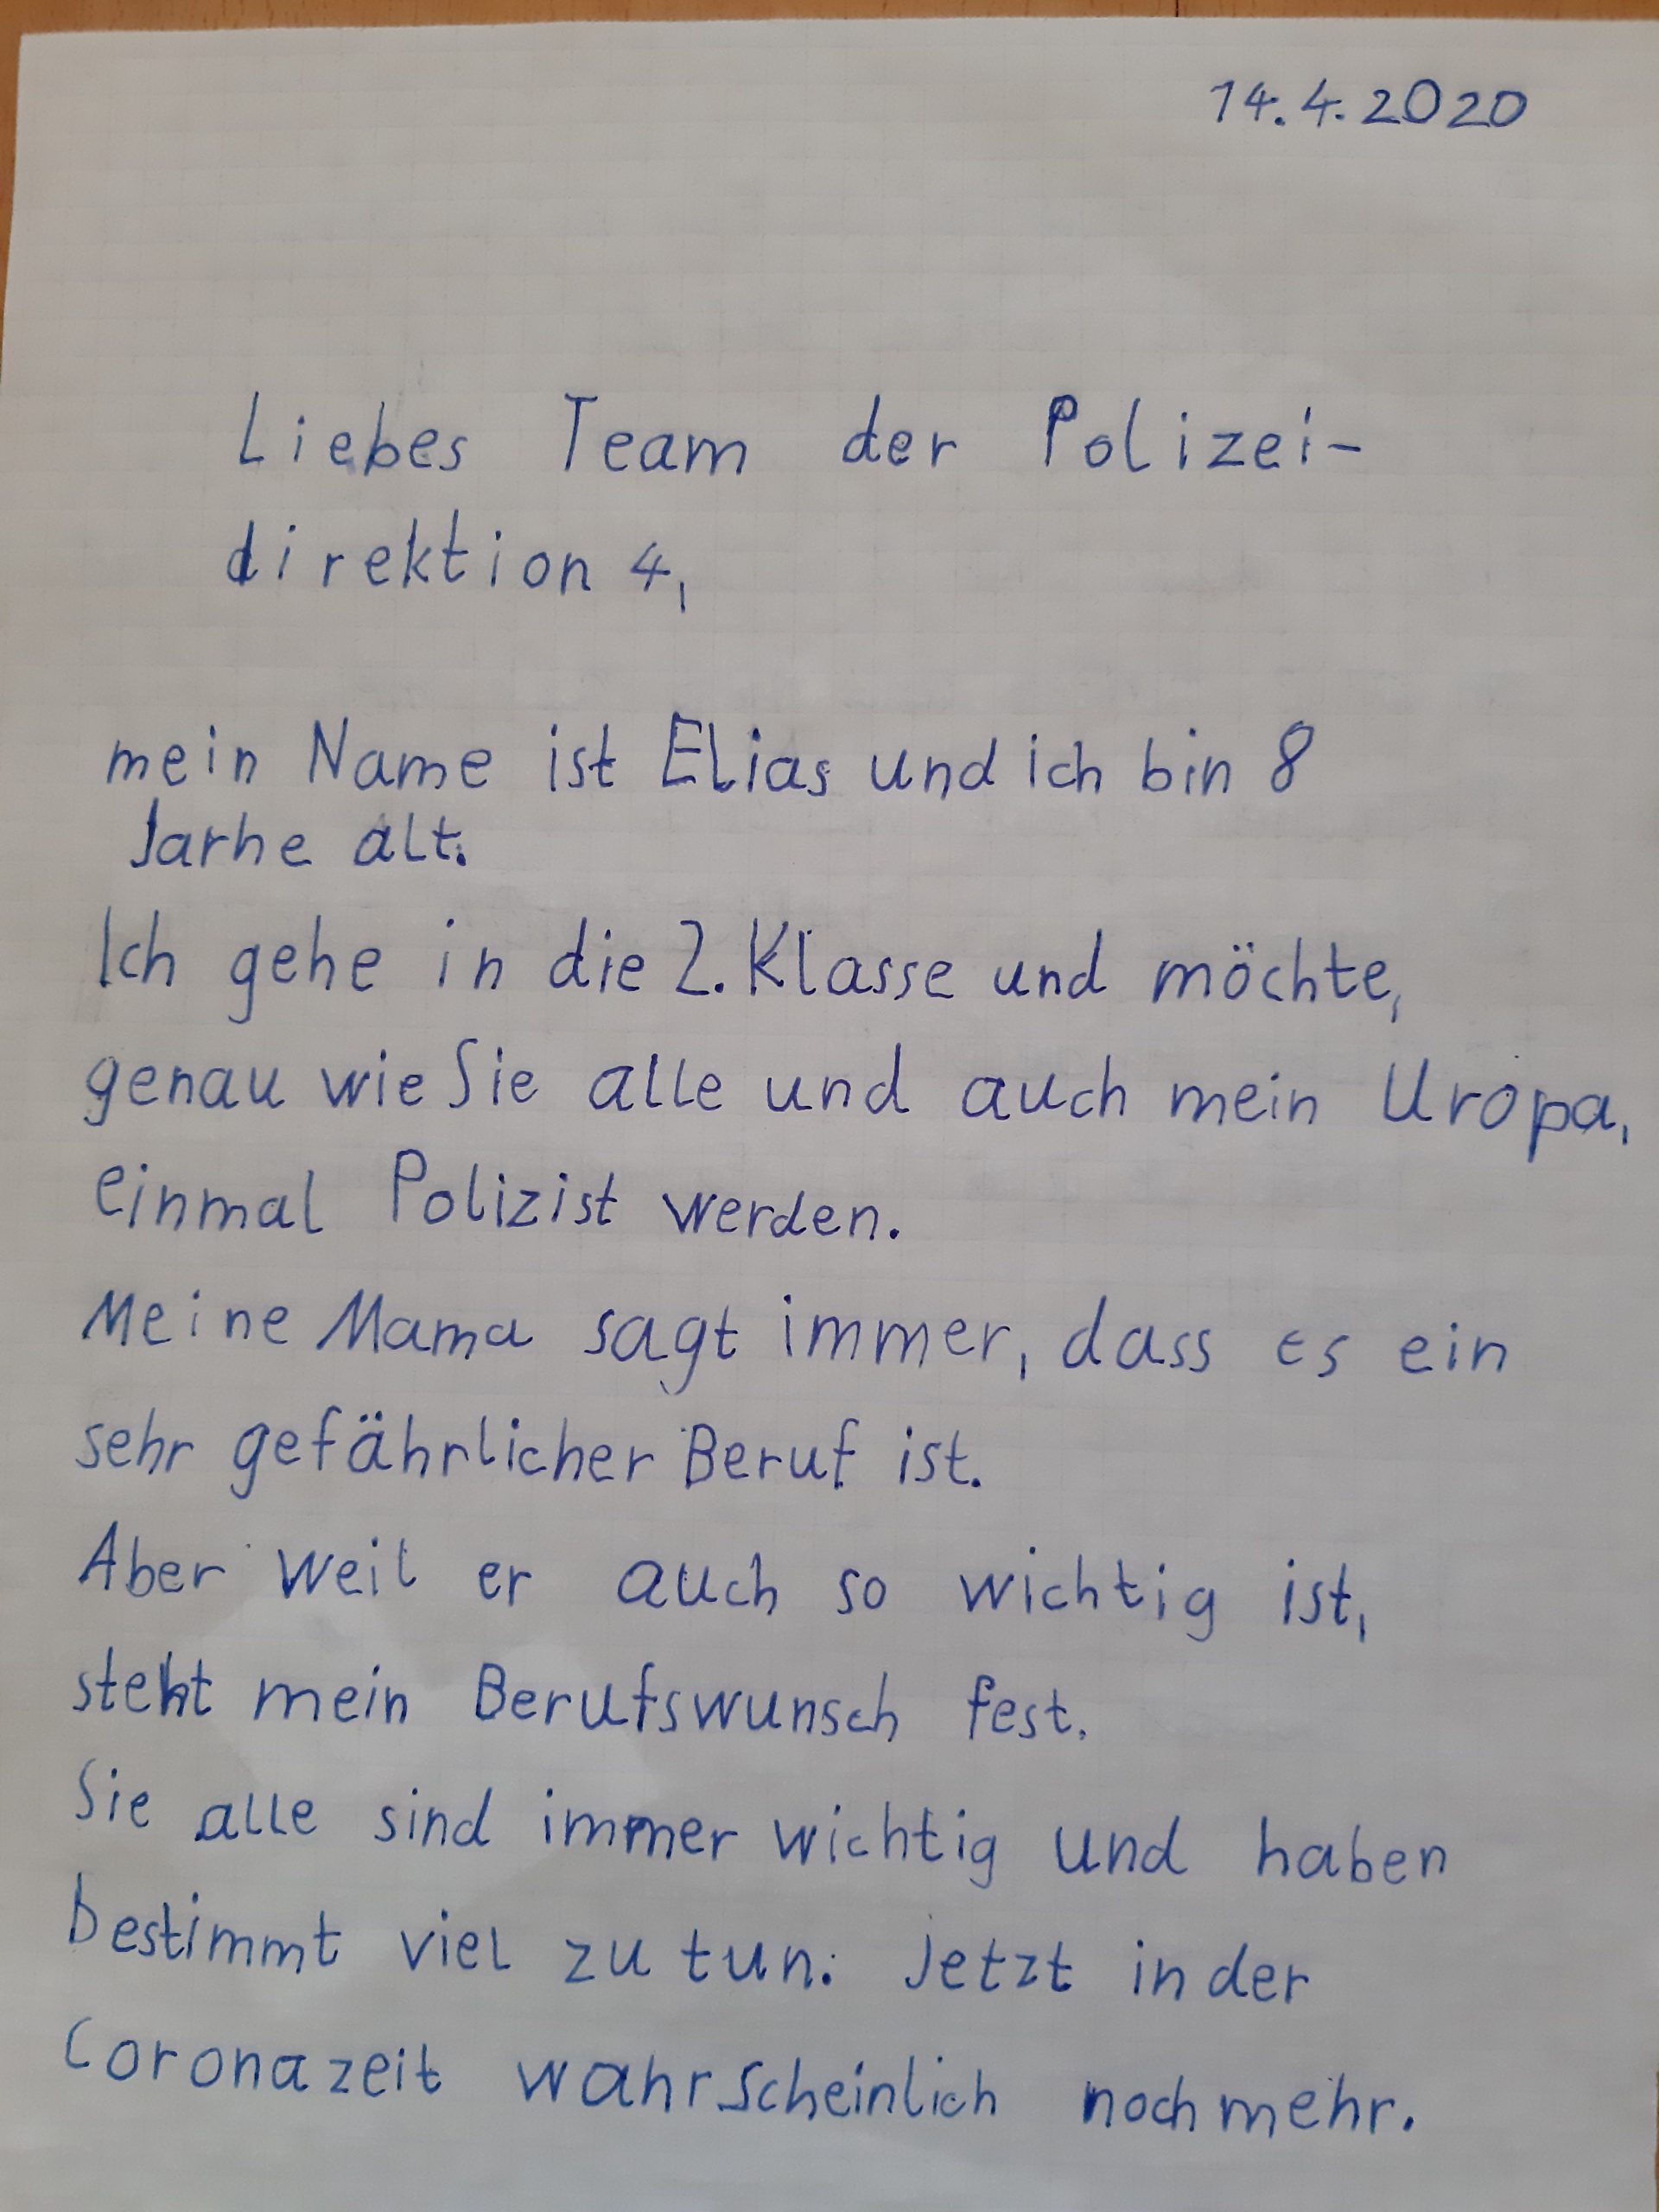 14.4.2020
Liebes Team der Polizei-
direktion 4,
mein Name ist Elias und ich bin 8
Jarhe alt.
Ich gehe in die 2. Klasse und möchte,
genau wie Sie alle und auch mein Uropa,
einmal Polizist werden.
Meine Mama sagt immer, dass es ein
sehr gefährlicher Beruf ist.
Aber weil er auch so wichtig ist,
steht mein Berufswunsch fest.
Sie alle sind immer wichtig und haben
bestimmt viel zu tun. Jetzt in der
Coronazeit wahrscheinlich noch mehr.